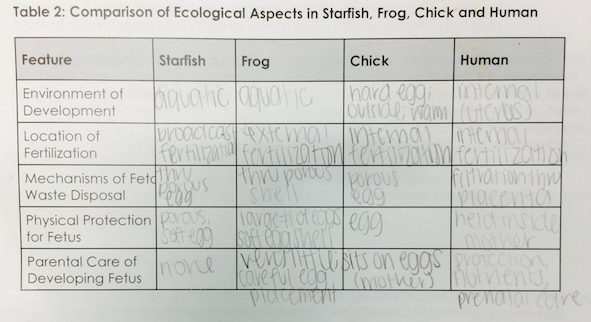 Table 2: Comparison of Ecological Aspects in Starfish, Frog, Chick and Human
Feature Starfish Frog Chick Human
Environment of Development aquatic aquatic hard egg; outside; warm internal (uterus)
Location of Fertilization broadcast fertilization external fertilization internal fertilization internal fertilization
Mechanisms of Fetc Waste Disposal thru porous egg thru porous shell porous egg filtration thru placenta
Physical Protection for Fetus porous, soft egg large # of eggs soft egg shell egg held inside mother
Parental Care of Developing Fetus none very little careful egg placement sits on eggs (mother) protection, nutrients, prenatal care